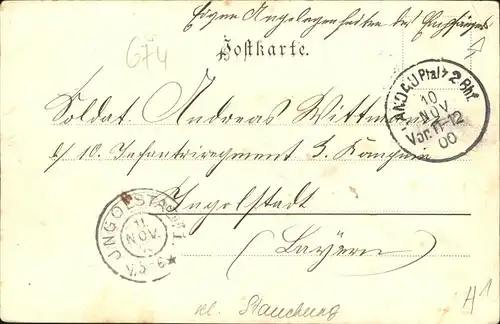 Eigene Angelegenheiten des Empfängers
G74
Postkarte.
LANDAU Pfalz 2 Bhf.
10
NOV
Vor. 11-12
00
Soldat. Andreas Wittmann
b/ 10. Infanterieregment 3. Kompanie
Ingolstadt
(Bayern)
INGOLSTADT I.
11
NOV.
V. 5-6
kl. Stauchung
H1